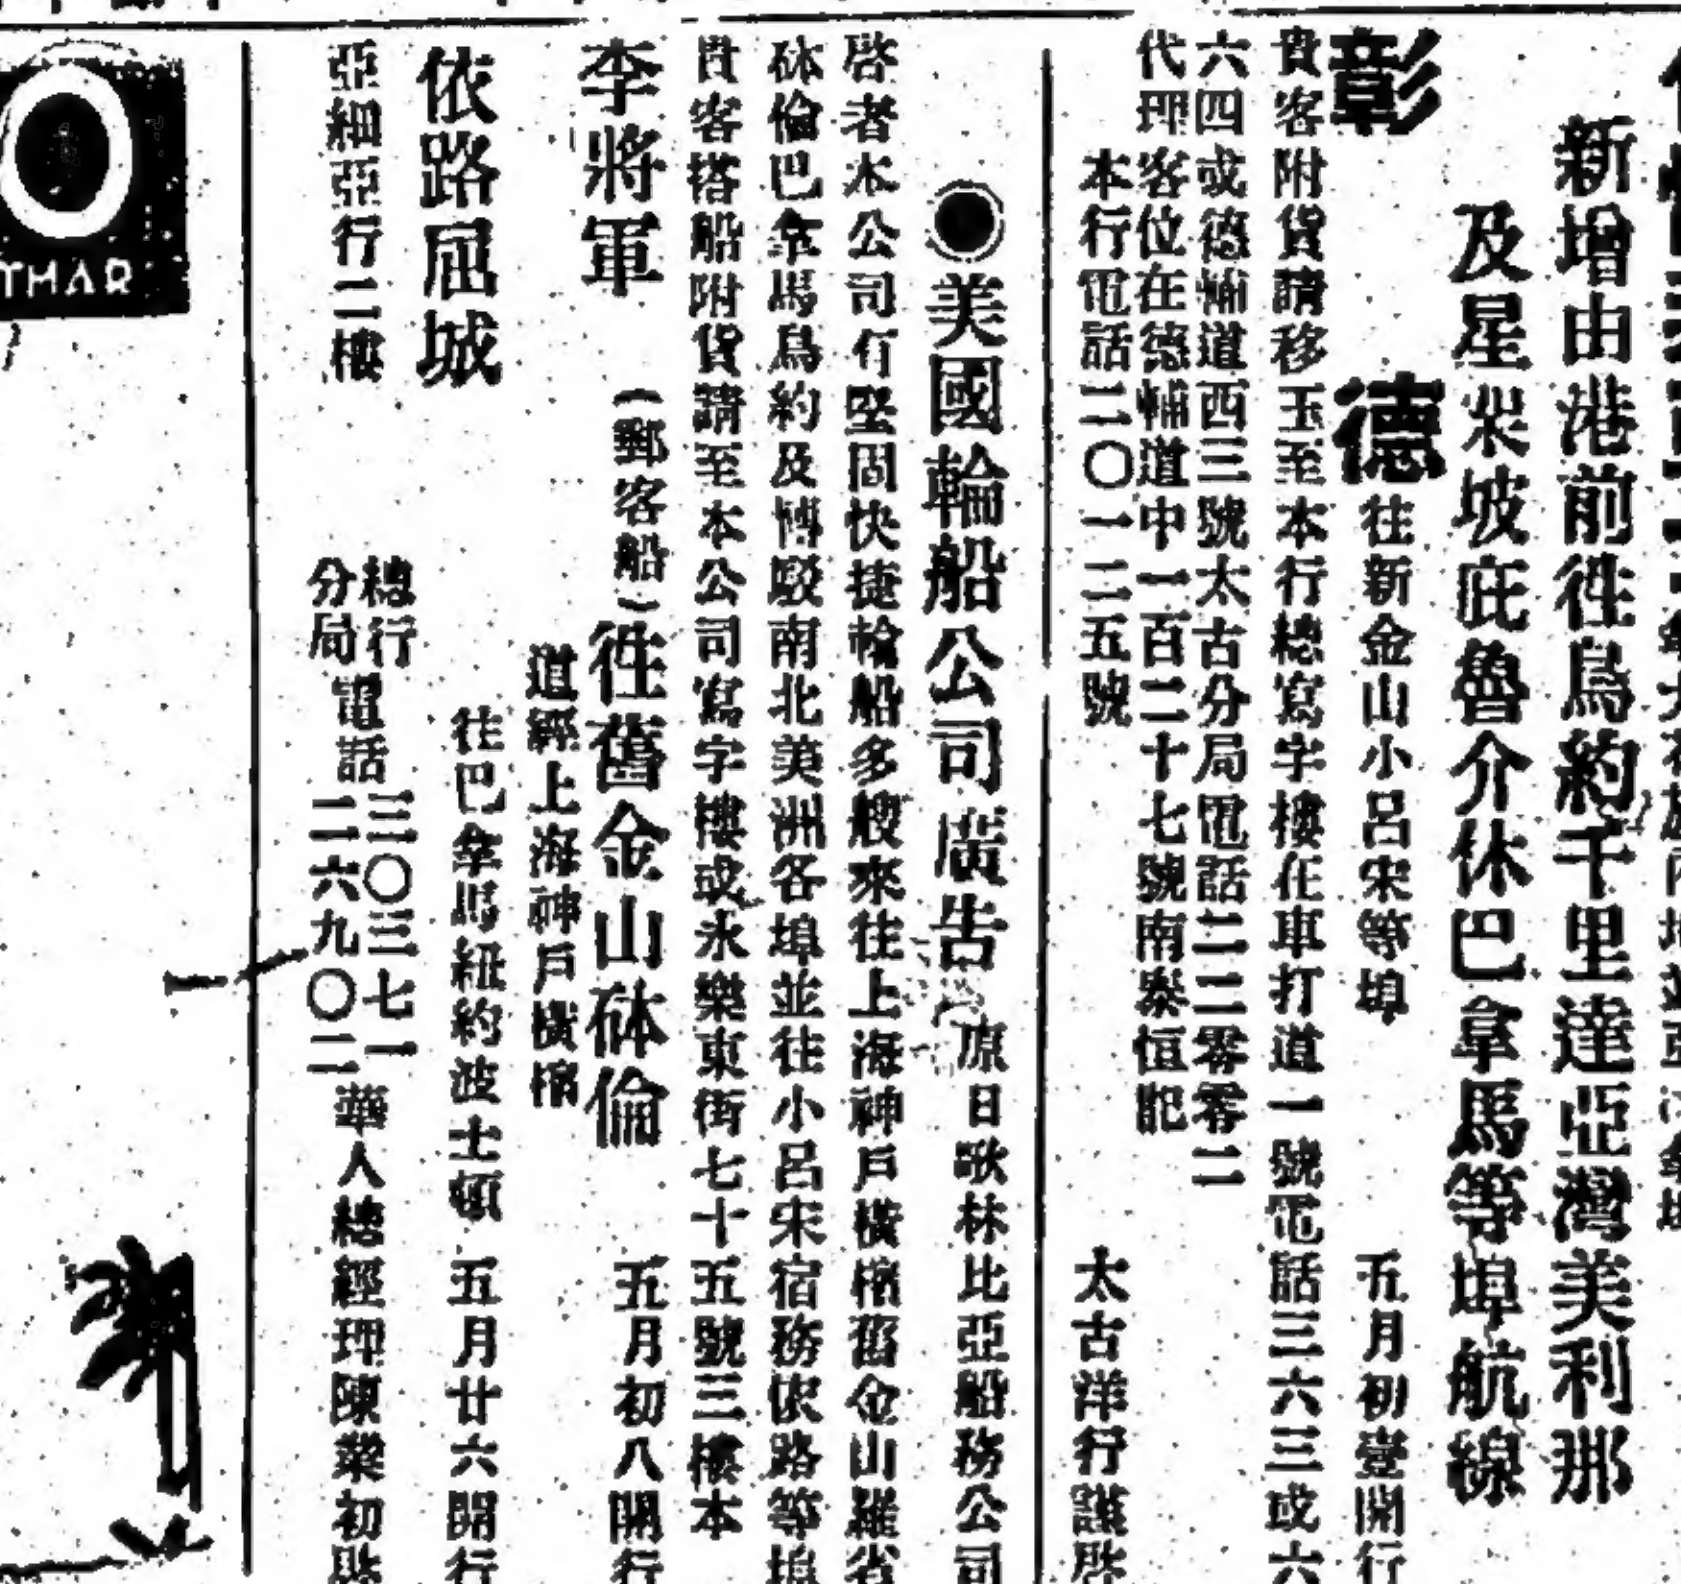 新增由港前往烏約千里達亞灣美利那
及星架坡庇魯介休巴拿馬等埠航線
彰德 往新金山小呂宋等埠 五月初壹開行
貴客附貨請移玉至本行總寫字樓在車打道一號電話三六三或六
六四或德輔道西三號太古分局電話二二零零二
代理客位在德輔道中一百二十七號南泰恒記
本行電話二〇一二五號 太古洋行謹啓
●美國輪船公司廣告 原日歌林比亞船務公司
啓者本公司有堅固快捷輪船多艘來往上海神戶橫檳舊金山羅省
砵倫巴拿馬鳥約及博駁南北美洲各埠並往小呂宋宿務依路等埠
貴客搭船附貨請至本公司寫字樓或永樂東街七十五號三樓本
李將軍 (郵客船) 往舊金山砵倫 五月初八開行
道經上海神戶橫檳
依路屈城 往巴拿馬紐約波士頓 五月廿六開行
亞細亞行二樓
總行
分局 電話 三〇三七一
二六九〇二
華人總經理陳樂初啓
THAR